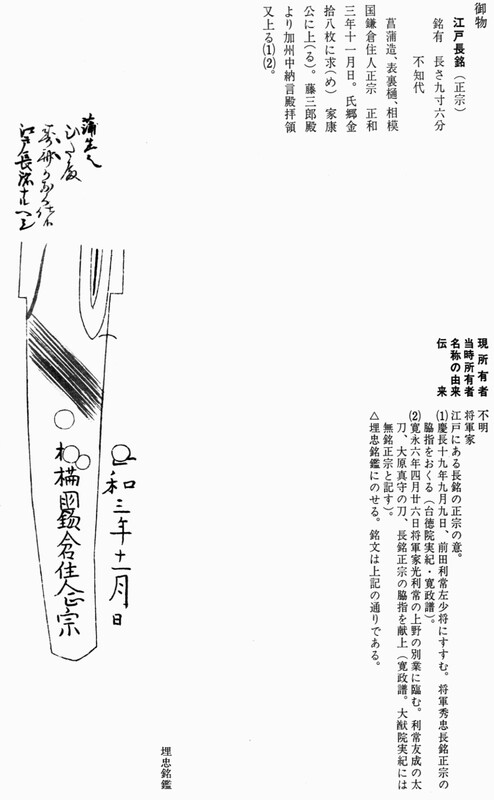 御物
江戸長銘(正宗)
銘有 長さ九寸六分
不知代
菖蒲造、表裏樋、相模
国鎌倉住人正宗 正和
三年十一月日。氏郷金
拾八枚に求(め) 家康
公に上(る)。藤三郎殿
より加州中納言殿拝領
又上る⑴⑵。
現所有者 不明
当時所有者 将軍家
名称の由来 江戸にある長銘の正宗の意。
伝来 ⑴慶長十九年九月九日、前田利常左少将にすすむ。将軍秀忠長銘正宗の
脇指をおくる(台徳院実紀・寛政譜)。
⑵寛永六年四月廿六日将軍家光利常の上野の別業に臨む。利常友成の太
刀、大原真守の刀、長銘正宗の脇指を献上(寛政譜。大猷院実紀には
無銘正宗と記す)。
△埋忠銘鑑にのせる。銘文は上記の通りである。
蒲生
江戸長銘
正和三年十一月日
相模国鎌倉住人正宗
埋忠銘鑑